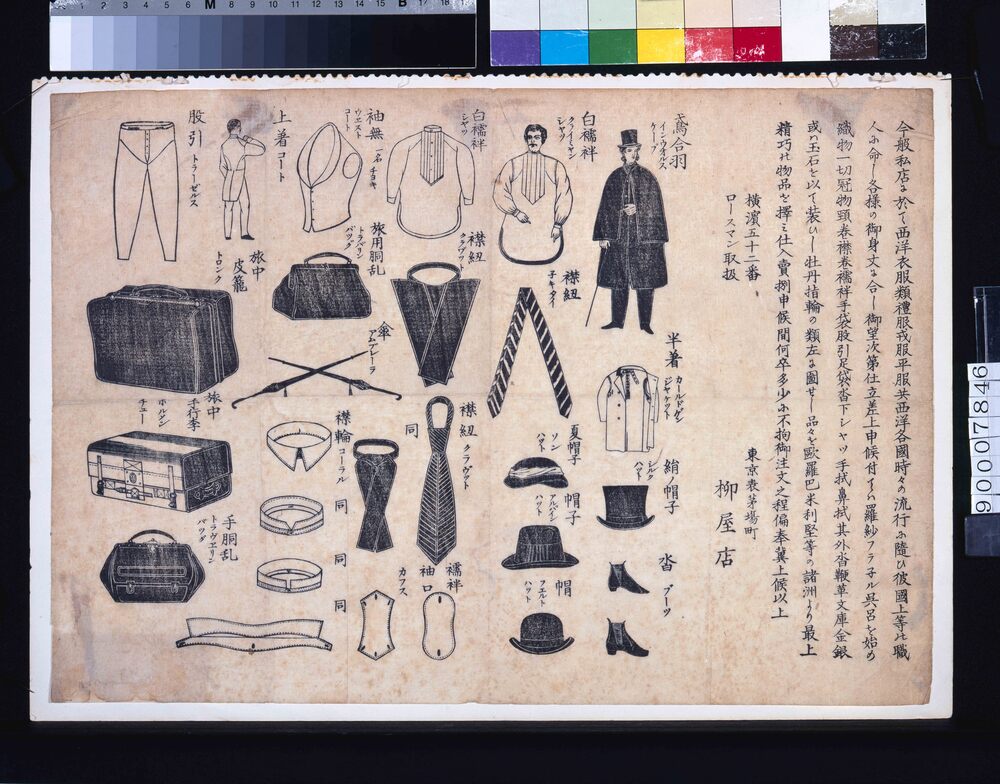 今般私店ニ於て西洋衣服類禮服戎服平服共西洋各國時々の流行ニ隨ひ彼國上等の職
人ニ命し各様の御身丈ニ合し御望次第仕立差上申候付てハ羅紗フラ子ル呉呂を始め
織物一切冠物頸巻襟巻襦袢手袋股引足袋沓下シャツ手拭鼻拭其外沓鞭革文庫金銀
或ハ玉石を以て装ひし牡丹指輪の類左ニ圖せし品々を歐羅巴米利堅等の諸洲より最上
精巧の物品を擇ミ仕入賣捌申候間何卒多少ニ不拘御注文之程偏奉冀上候以上
東京表茅場町
柳屋店
横濱五十二番
ロースマン取扱
鳶合羽
インウオルス
ケープ
半着
カールドガン
ジャケット
絹ノ帽子
シルク
ハット
沓
ブーツ
白襦袢
クリミヤン
シャツ
襟紐
子キタイ
夏帽子
ソン
ハット
帽子
アルパイン
ハット
帽
フエルト
ハット
白襦袢
シャツ
襟紐
クラヴット
襟紐
クラヴット
同
襦袢
袖口
カフス
袖無
一名チヨキ
ウエスト
コート
旅用胴乱
トラバリン
バッグ
傘
アムブレーラ
襟輪
コーラル
同
同
同
上着
コート
股引
トラーゼルス
旅中
皮籠
トロンク
旅中
手行李
ホルメン
チユー
手胴乱
トラヴエリン
バッグ
90007846